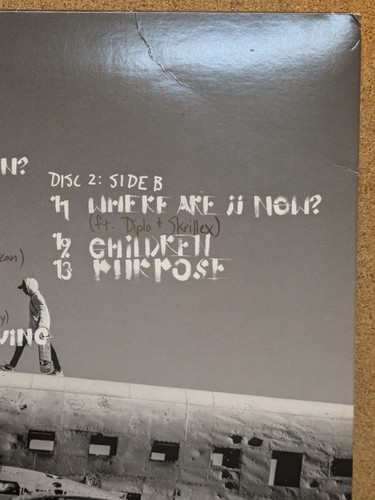 N?
DISC 2: SIDE B
11 WHERE ARE Ü NOW?
(ft. Diplo + Skrillex)
12 CHILDREN
13 PURPOSE
ean)
y)
VING